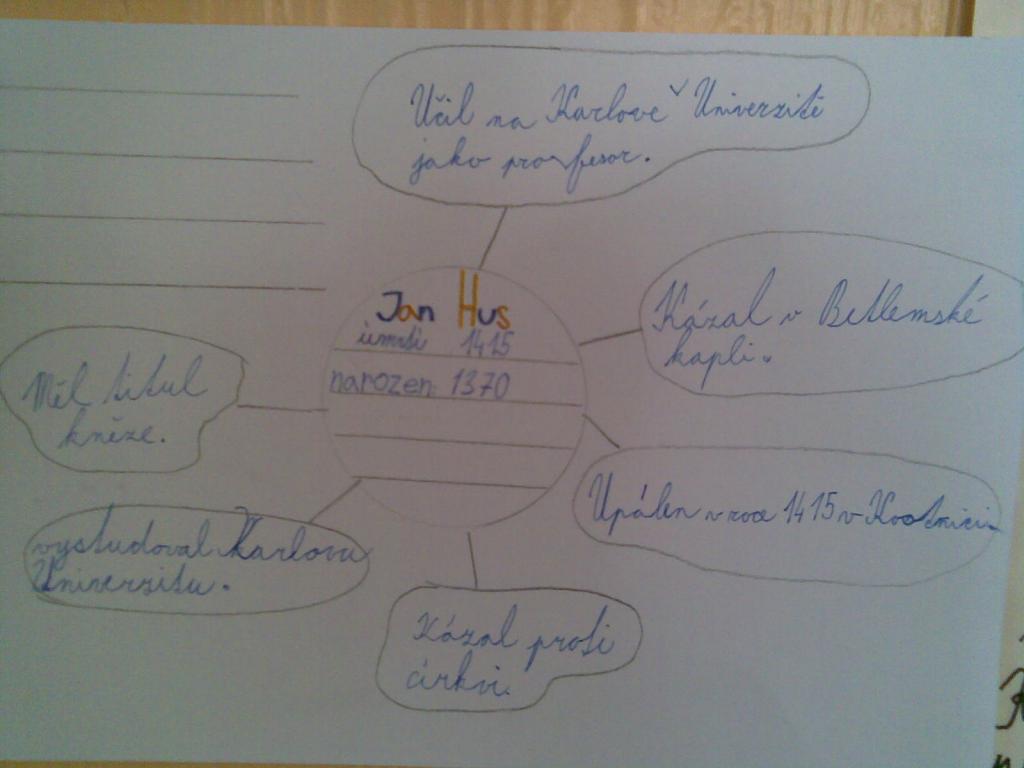 Učil na Karlově Univerzitě
jako profesor.
Jan Hus
úmrtí 1415
narozen: 1370
Kázal v Betlemské
kapli.
Měl titul
kněze.
Upálen v roce 1415 v Kostnici
vystudoval Karlovu
Univerzitu.
Kázal proti
církvi.